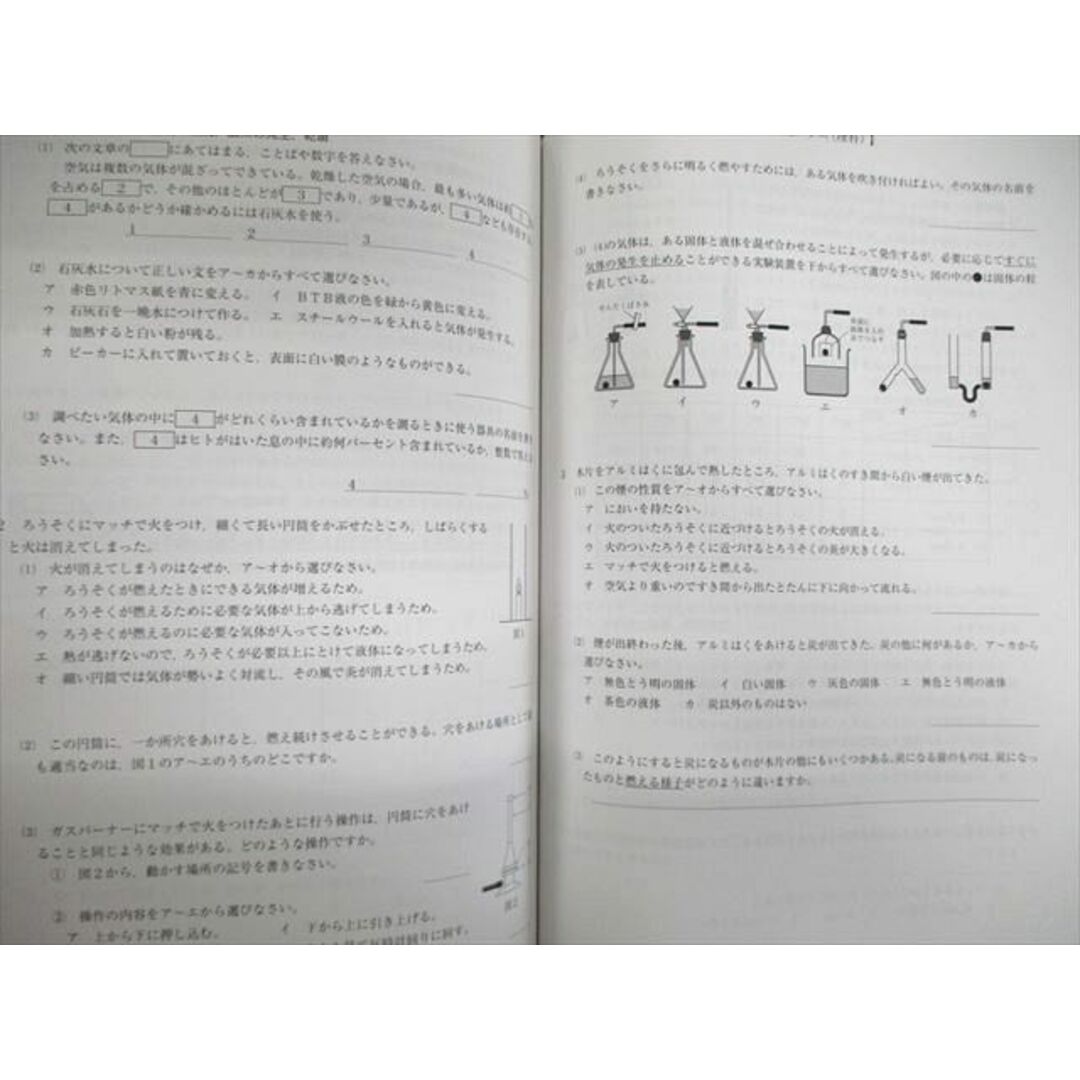 (1) 次の文章の□にあてはまる,ことばや数字を答えなさい。
空気は複数の気体が混ざってできている。乾燥した空気の場合,最も多い気体は約
を占める 2 で,その他のほとんどが 3 であり,少量であるが, 4 なども存在する。
4 があるかどうか確かめるには石灰水を使う。
1 2 3 4
(2) 石灰水について正しい文をア~カからすべて選びなさい。
ア 赤色リトマス紙を青に変える。 イ BTB液の色を緑から黄色に変える。
ウ 石灰石を一晩水につけて作る。 エ スチールウールを入れると気体が発生する。
オ 加熱すると白い粉が残る。
カ ビーカーに入れて置いておくと,表面に白い膜のようなものができる。
(3) 調べたい気体の中に 4 がどれくらい含まれているかを調るときに使う器具の名前を書き
なさい。また, 4 はヒトがはいた息の中に約何パーセント含まれているか,整数で答えな
さい。
4 %
2 ろうそくにマッチで火をつけ,細くて長い円筒をかぶせたところ,しばらくする
と火は消えてしまった。
(1) 火が消えてしまうのはなぜか,ア~オから選びなさい。
ア ろうそくが燃えたときにできる気体が増えるため。
イ ろうそくが燃えるために必要な気体が上から逃げてしまうため。
ウ ろうそくが燃えるのに必要な気体が入ってこないため。
エ 熱が逃げないので,ろうそくが必要以上にとけて液体になってしまうため。
オ 細い円筒では気体が勢いよく対流し,その風で炎が消えてしまうため。
図1
(2) この円筒に,一か所穴をあけると,燃え続けさせることができる。穴をあける場所として最
も適当なのは,図1のア~エのうちのどこですか。
(3) ガスバーナーにマッチで火をつけたあとに行う操作は,円筒に穴をあけ
ることと同じような効果がある。どのような操作ですか。
① 図2から,動かす場所の記号を書きなさい。
図2
② 操作の内容をア~エから選びなさい。
ア 上から下に押し込む。 イ 下から上に引き上げる。
(4) ろうそくをさらに明るく燃やすためには,ある気体を吹き付ければよい。その気体の名前を
書きなさい。
(5) (4)の気体は,ある固体と液体を混ぜ合わせることによって発生するが,必要に応じてすぐに
気体の発生を止めることができる実験装置を下からすべて選びなさい。図の中の●は固体の粒
を表している。
せんたくばさみ
ア イ ウ エ オ カ
3 木片をアルミはくに包んで熱したところ,アルミはくのすき間から白い煙が出てきた。
(1) この煙の性質をア~オからすべて選びなさい。
ア においを持たない。
イ 火のついたろうそくに近づけるとろうそくの火が消える。
ウ 火のついたろうそくに近づけるとろうそくの炎が大きくなる。
エ マッチで火をつけると燃える。
オ 空気より重いのですき間から出たとたんに下に向かって流れる。
(2) 煙が出終わった後,アルミはくをあけると炭が出てきた。炭の他に何があるか,ア~カから
選びなさい。
ア 無色とう明の固体 イ 白い固体 ウ 灰色の固体 エ 無色とう明の液体
オ 茶色の液体 カ 炭以外のものはない
(3) このようにすると炭になるものが木片の他にもいくつかある。炭になる前のものは,炭になっ
たものと燃える様子がどのように違いますか。